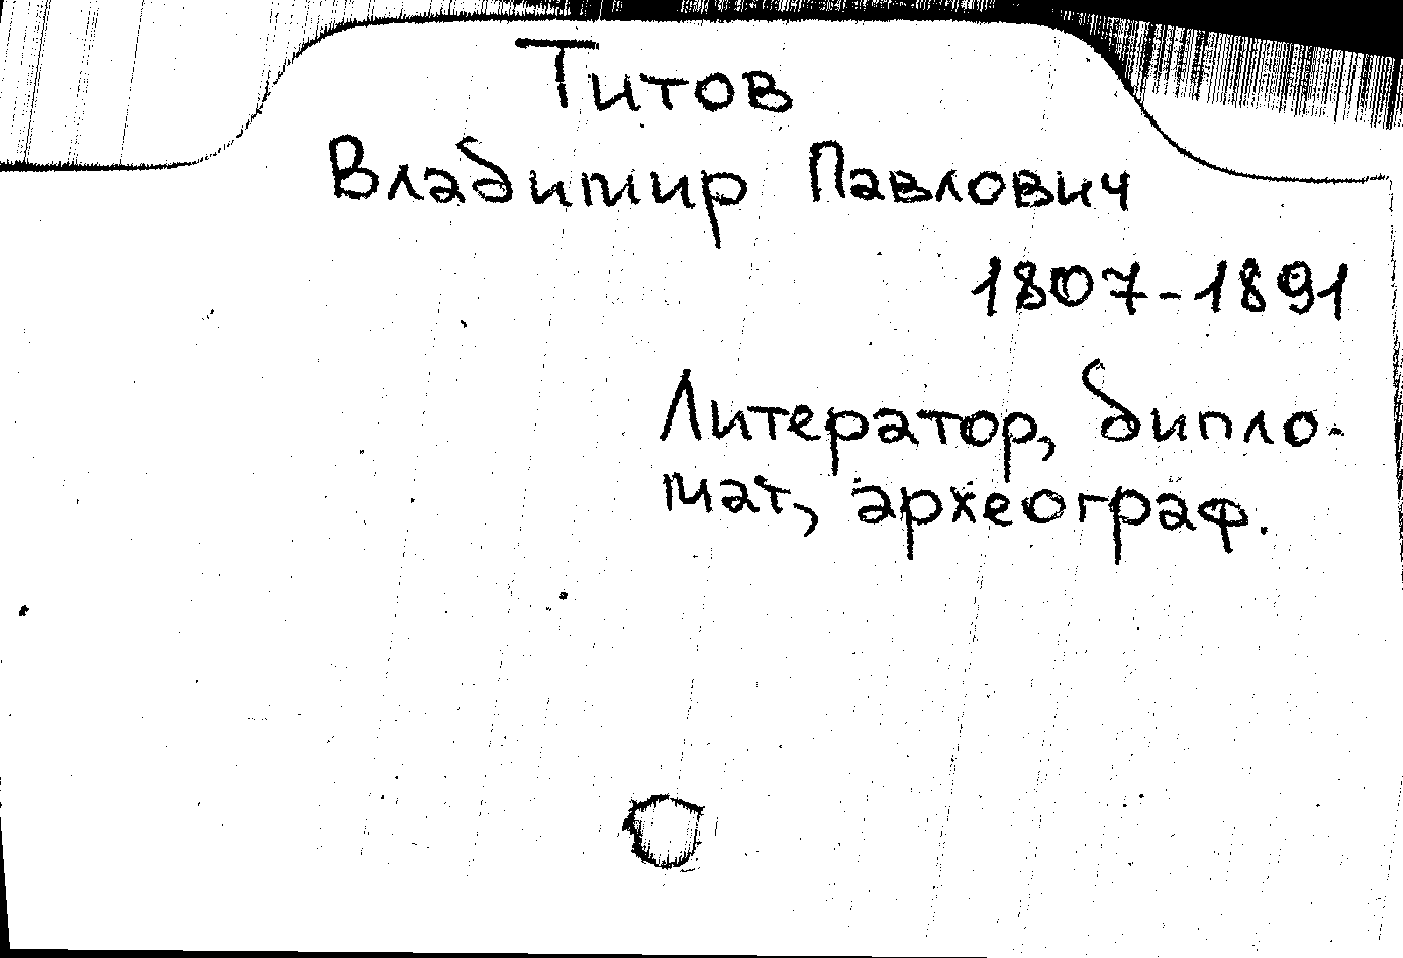 Титов
Владимир Павлович
1807-1891
Литератор, дипло-
мат, археограф.